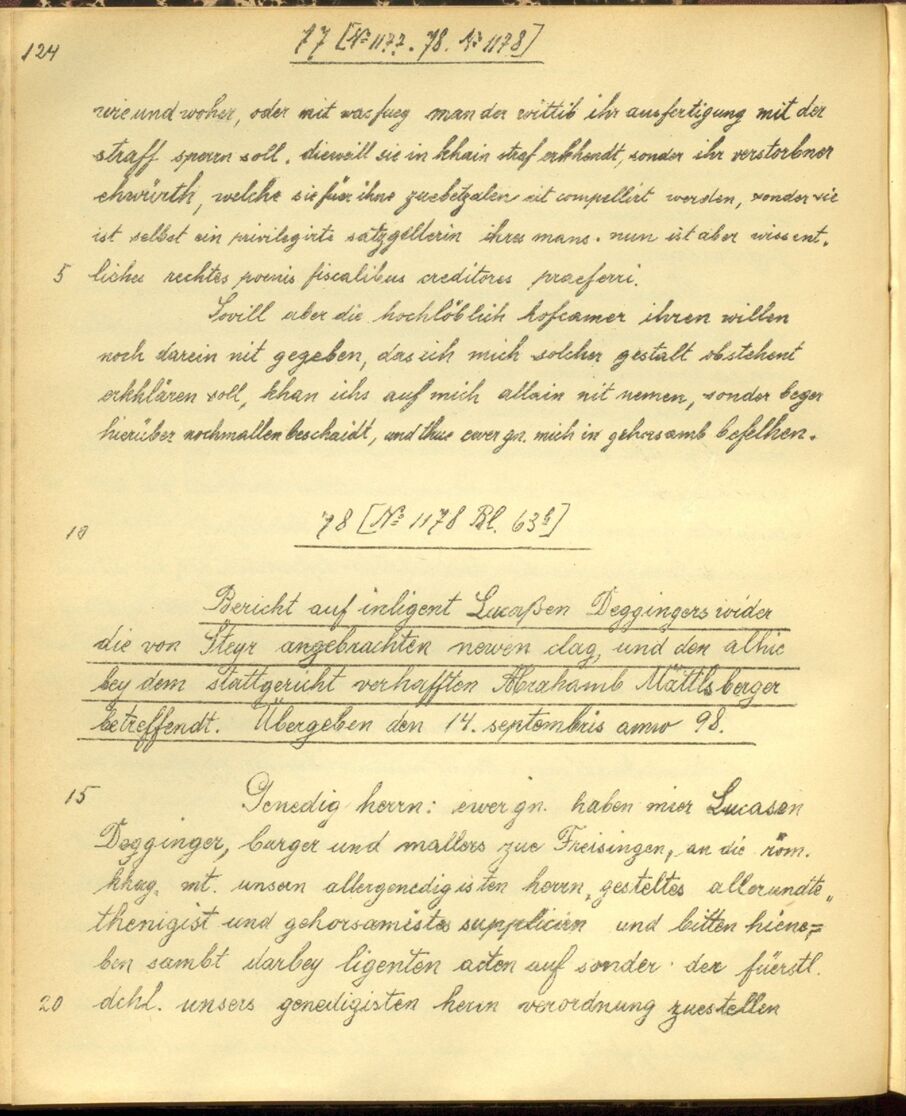 124
77 [No 1177. 78. No 1178]
wie und woher, oder mit was fueg man der wittib ihr ausfertigung mit der
straff sperrn soll. dieweill sie in khain straf erkhendt, sonder ihr verstorbner
ehwürth, welche sie für ihne zuebetzalen nit compellirt werden, sonder sie
ist selbst ein privilegirte satzgelterin ihres mans. nun ist aber wissent.
5 liches rechtes poenis fiscalibus creditores praeferri.
Sovill aber die hochlöblich hofcamer ihren willen
noch darein nit gegeben, das ich mich solcher gestalt obstehent
erkhlären soll, khan ichs auf mich allain nit nemen, sonder beger
hierüber nochmallen beschaidt, und thue ewer gn. mich in gehorsamb befelhen.
10 78 [No 1178 Bl. 63b]
Bericht auf inligent Lucaßen Deggingers wider
die von Steyr angebrachten newen clag, und den alhie
bey dem stattgericht verhafften Abrahamb Mättlsberger
betreffendt. Übergeben den 14. septembris anno 98.
15 Genedig herrn: ewer gn. haben mier Lucasen
Degginger, burger und mallers zue Freisingen, an die röm.
khay. mt. unsern allergenedigisten herrn, gesteltes allerundte„
thenigist und gehorsamistes supplicirn und bitten hiene,=
ben sambt darbey ligenten acten auf sonder der fürstl.
20 dchl. unsers genedigisten herrn verordnung zuestellen